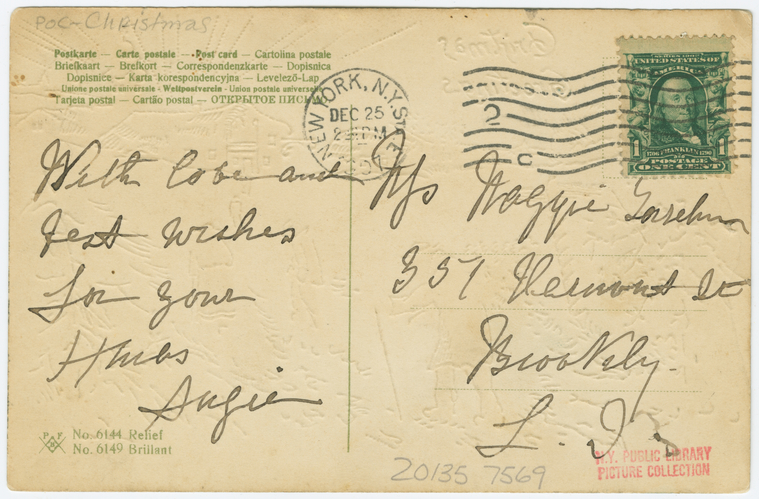 POC-Christmas
Postkarte — Carte postale — Post card — Cartolina postale
Briefkaart — Brefkort — Correspondenzkarte — Dopisnica
Dopisnice — Karta korespondencyjna — Levelező-Lap
Unione postale universale - Weltpostverein - Union postale universelle
Tarjeta postal — Cartão postal — ОТКРЫТОЕ ПИСЬМО
NEW YORK, N.Y. STA.
DEC 25
PM
SERIES 1902
UNITED STATES OF
AMERICA
1 1706 FRANKLIN 1790 1
POSTAGE
ONE CENT
With love and
best wishes
for your
Xmas
Angie
Mrs Maggie
357 Vermont St
Brooklyn
L. I.
PFB
No. 6144 Relief
No. 6149 Brillant
20135 7569
N.Y. PUBLIC LIBRARY
PICTURE COLLECTION